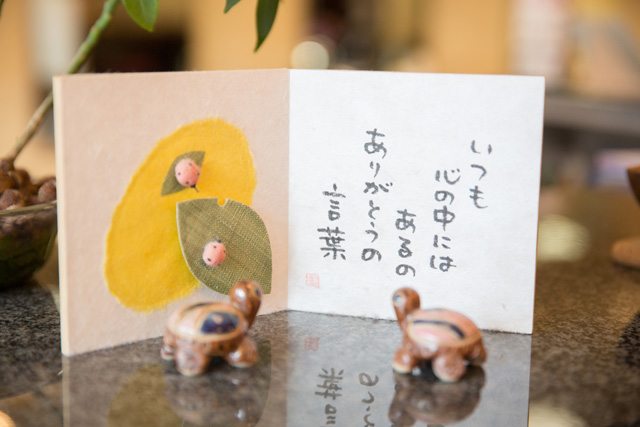 いつも
心の中には
あるの
ありがとうの
言葉